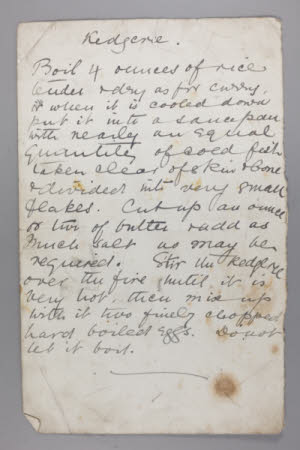 Kedgerie.
Boil 4 ounces of rice
tender & dry as for curry,
& when it is cooled down
put it into a saucepan
with nearly an equal
quantity of cold fish
taken clear of skin & bone
& divided into very small
flakes. Cut up an ounce
or two of butter & add as
much salt as may be
required. Stir the kedgerie
over the fire until it is
very hot, then mix up
with it two finely chopped
hard boiled eggs. Do not
let it boil.